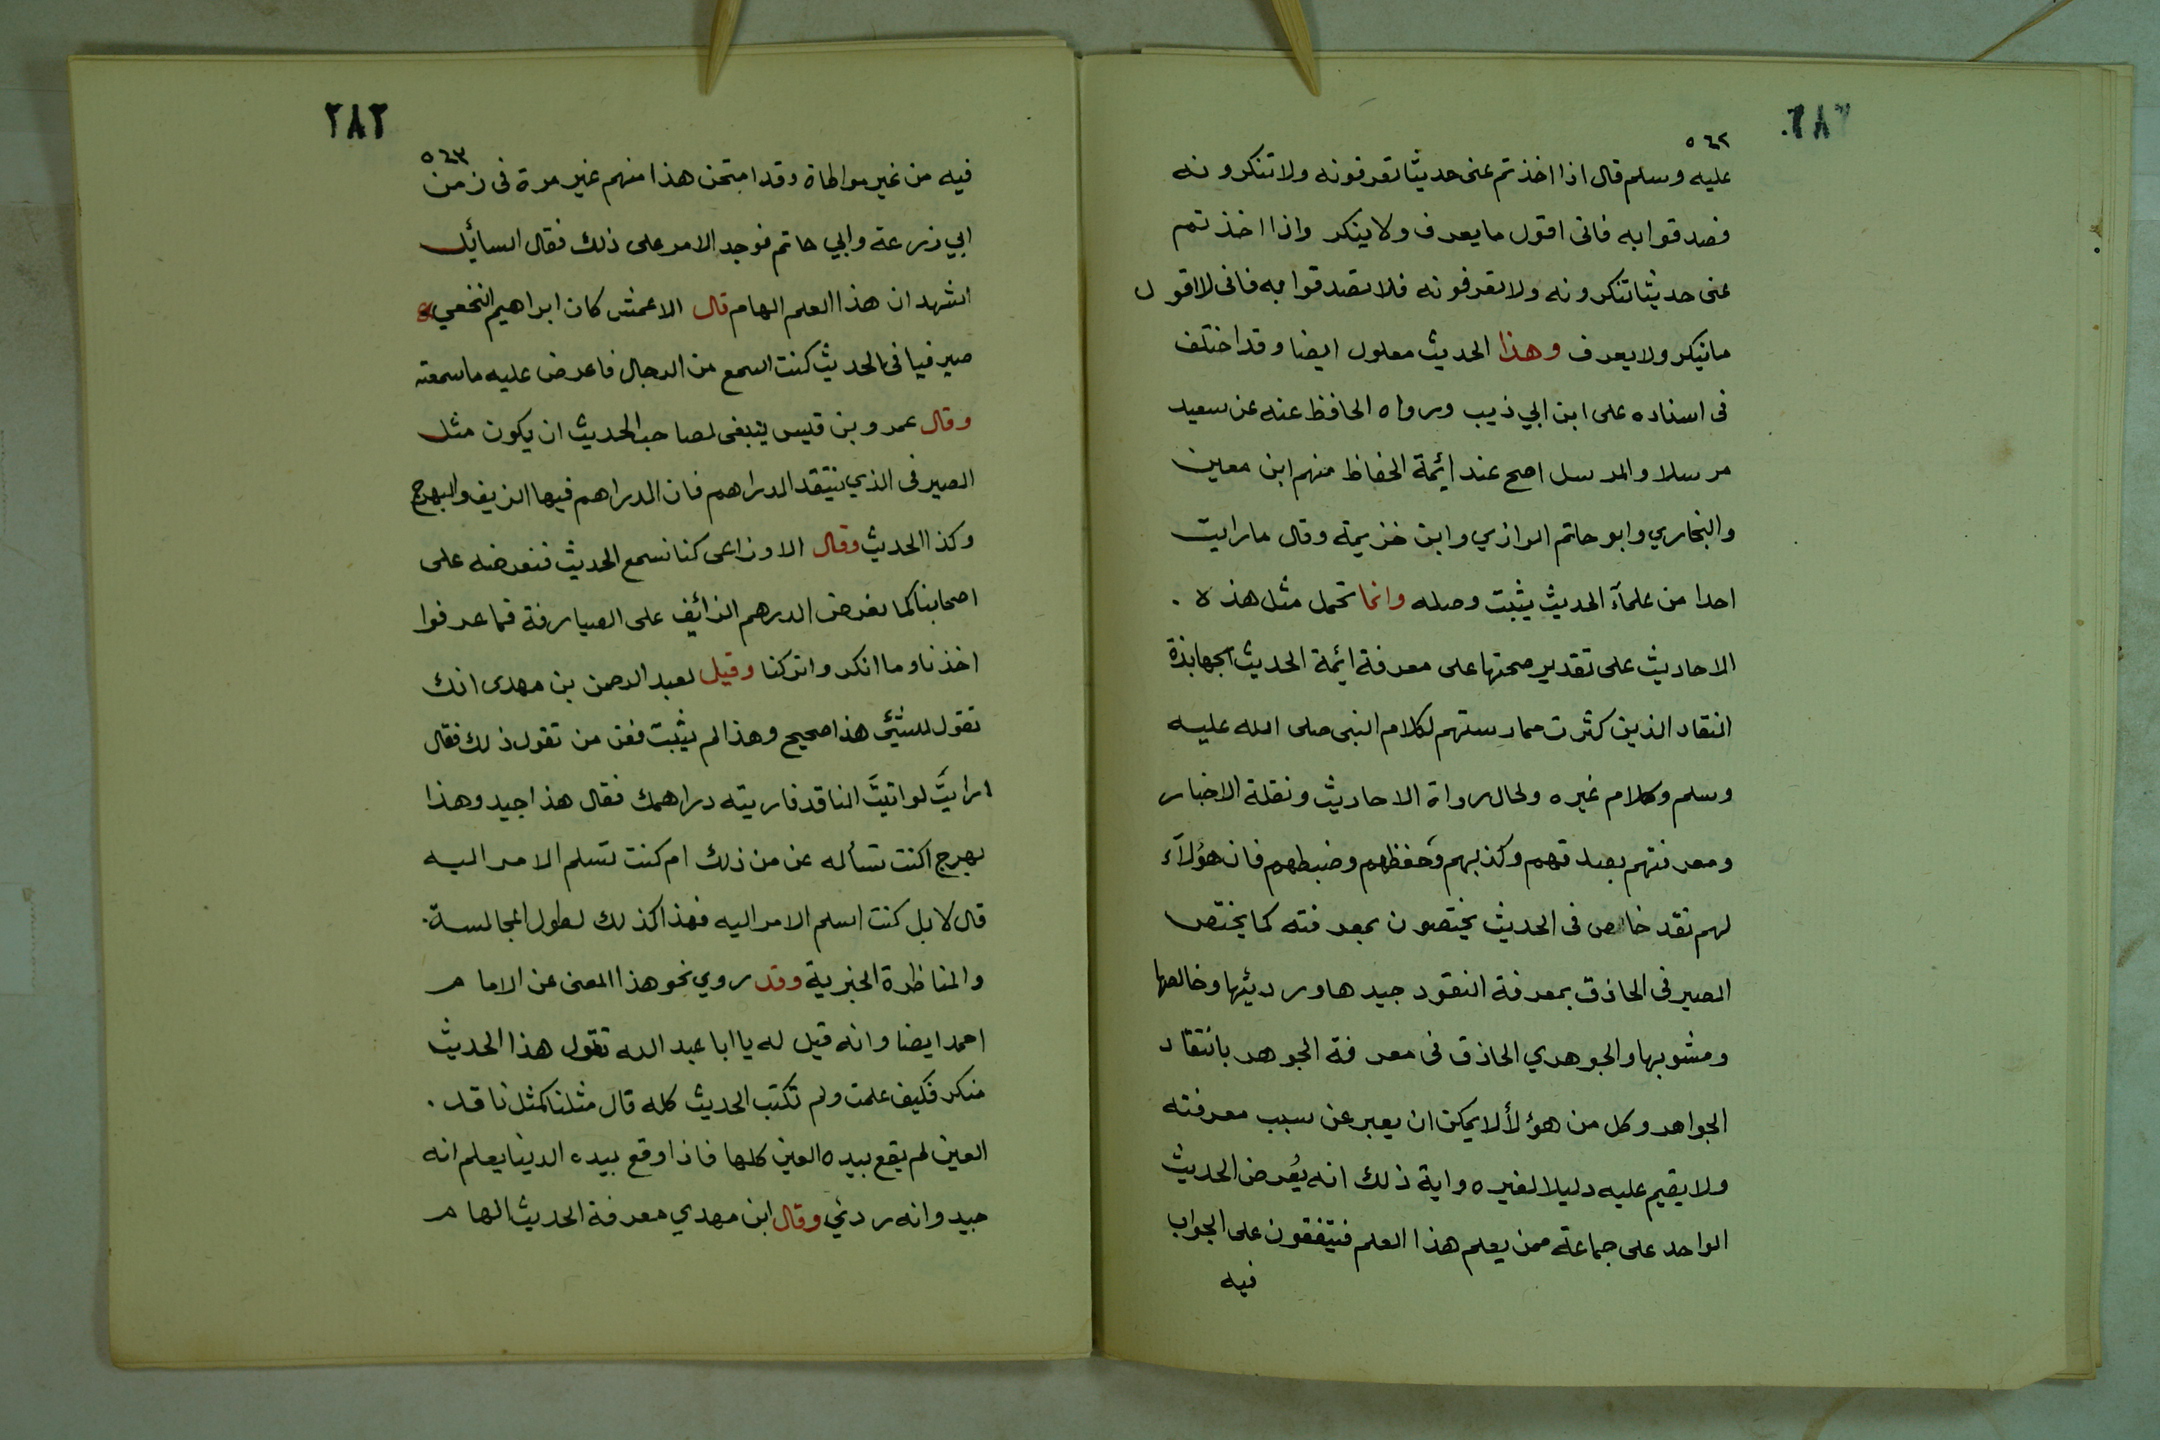 ٥٦٢
عليه وسلم قال اذا اخذتم عنى حديثا تعرفونه ولا تنكرونه
فصدقوا به فانى اقول ما يعرف ولا ينكر واذا اخذتم
عنى حديثا تنكرونه ولا تعرفونه فلا تصدقوا به فانى لا اقول
ما ينكر ولا يعرف وهذا الحديث معلول ايضا وقد اختلف
فى اسناده على ابن ابي ذيب ورواه الحافظ عنه عن سعيد
مرسلا والمرسل اصح عند ايئمة الحفاظ منهم ابن معين
والبخاري وابو حاتم الرازي وابن خزيمة وقال ما رايت
احدا من علمآء الحديث يثبت وصله وانما تحمل مثل هذه .
الاحاديث على تقدير صحتها على معرفة ايئمة الحديث الجهابذة
النقاد الذين كثرت ممارستهم لكلام النبى صلى الله عليه
وسلم وكلام غيره ولحال رواة الاحاديث ونقلة الاخبار
ومعرفتهم بصدقهم وكذبهم وحفظهم وضبطهم فان هؤلآء
لهم نقد خاص فى الحديث يختصون بمعرفته كما يختص
الصيرفى الحاذق بمعرفة النقود جيدها ورديئها وخالصها
ومشوبها والجوهري الحاذق فى معرفة الجوهر بانتقاد
الجواهر وكل من هؤلأ لا يمكن ان يعبر عن سبب معرفته
ولا يقيم عليه دليلا لغيره واية ذلك انه يُعرض الحديث
الواحد على جماعة ممن يعلم هذا العلم فيتفقون على الجواب
فيه
٢٨٢
٥٦٣
فيه من غير مواطاة وقد امتحن هذا منهم غير مرة فى زمن
ابي زرعة وابي حاتم فوجد الامر على ذلك فقال السائل
اشهد ان هذا العلم الهام قال الاعمش كان ابراهيم النخعي
صيرفيا فى الحديث كنت اسمع من الرجال فاعرض عليه ما سمعته
وقال عمرو بن قيس ينبغى لصاحب الحديث ان يكون مثل
الصيرفى الذي ينتقد الدراهم فان الدراهم فيها الزيف والبهرج
وكذا الحديث وقال الاوزاعى كنا نسمع الحديث فنعرضه على
اصحابنا كما نعرض الدرهم الزائف على الصيارفة فما عرفوا
اخذنا وما انكروا تركنا وقيل لعبد الرحمن بن مهدى انك
تقول للشيئ هذا صحيح وهذا لم يثبت فعن من تقول ذلك فقال
ارايتَ لو اتيتَ الناقد فاريته دراهمك فقال هذا جيد وهذا
بهرج اكنت تسأله عن من ذلك ام كنت تسلم الامر اليه
قال لا بل كنت اسلم الامر اليه فهذا كذلك لطول المجالسة.
والمناظرة الخبرية وقد روي نحو هذا المعنى عن الامام
احمد ايضا وانه قيل له يا ابا عبد الله تقول هذا الحديث
منكر فكيف علمت ولم تكتب الحديث كله قال مثلنا كمثل ناقد .
العين لم يقع بيده العين كلها فاذا وقع بيده الدينا يعلم انه
جيد وانه رديئ وقال ابن مهدي معرفة الحديث الهام